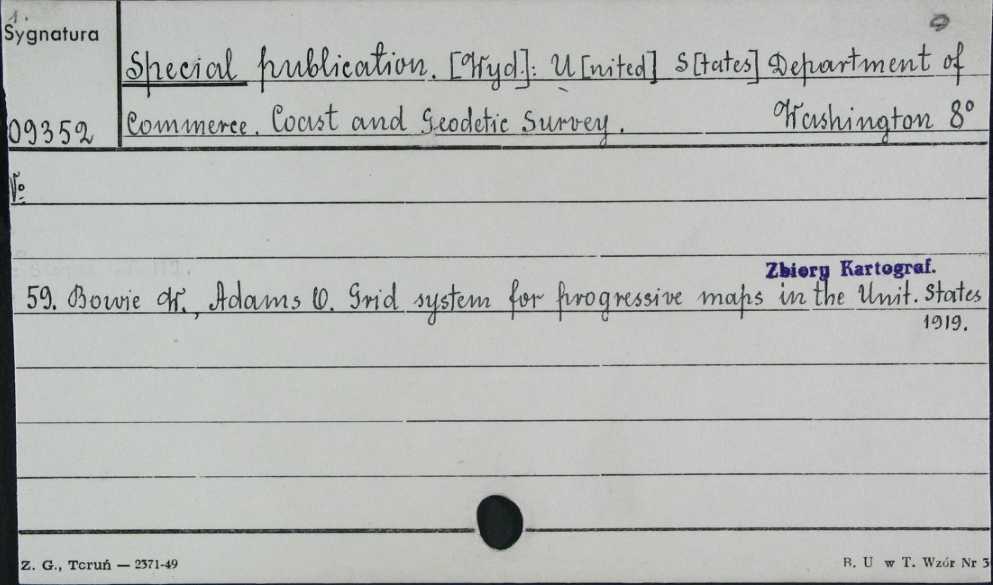 1.
Sygnatura
Special publication. [Wyd.]: U[nited] S[tates] Department of
09352
Commerce. Coast and Geodetic Survey. Washington 8°
No
Zbiory Kartograf.
59. Bowie W., Adams O. Grid system for progressive maps in the Unit. States
1919.
Z. G., Toruń — 2371-49
B. U w T. Wzór Nr 3